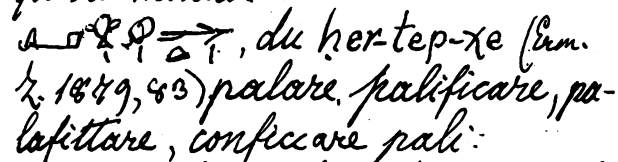 , du ḥer-tep-χe (Erm.
Z. 1879, 83) palare, palificare, pa-
lafittare, conficcare pali: